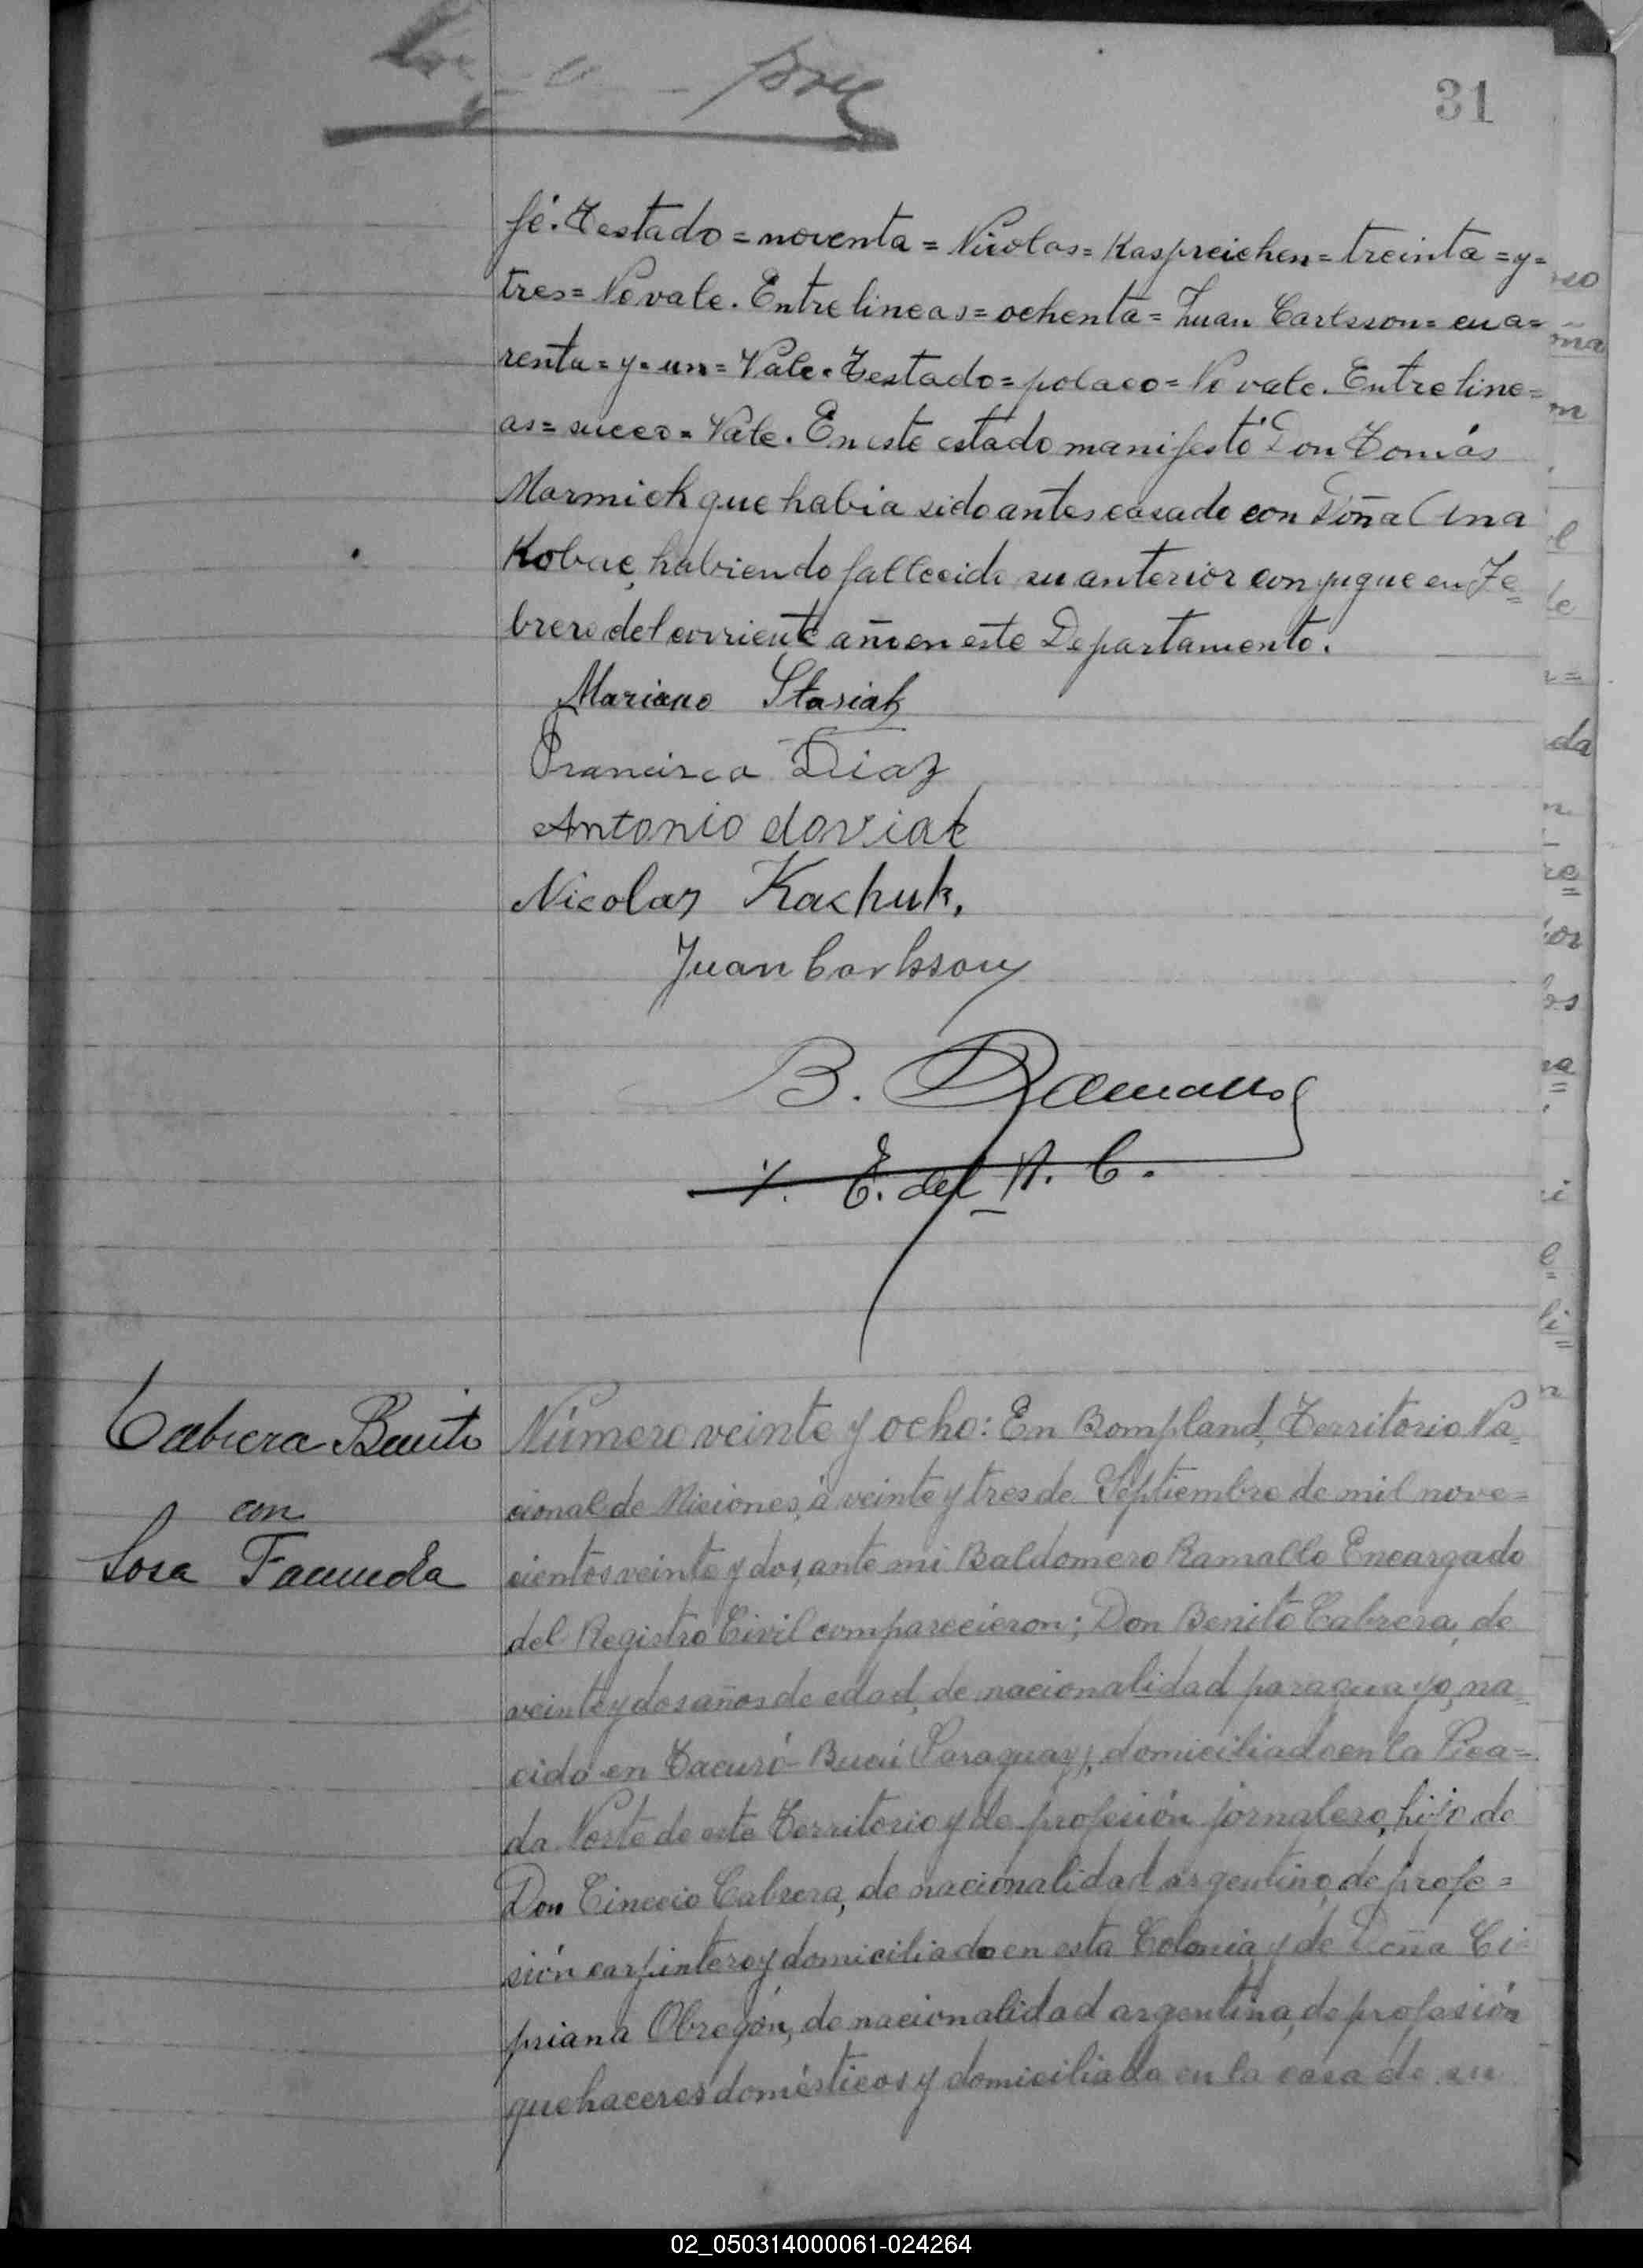 31
fé. Testado = noventa = Nicolas = Kaspreichen = treinta = y =
tres = No vale. Entre lineas = ochenta = Juan Carlsson = cua=
renta = y = un = Vale. Testado = polaco = No vale. Entre line=
as = sueco = Vale. En este estado manifestó Don Tomás
Marmich que habia sido antes casado con Doña Ana
Kobac, habiendo fallecido su anterior conyugue en Fe=
brero del corriente año en este Departamento.
Mariano Stasiak
Francisco Diaz
Antonio
Nicolas Kachuk.
Juan Carlsson
B. Ramallo
E. del R. C.
Cabrera Benito
con
Sosa Facunda
Número veinte y ocho: En Bompland, Territorio Na=
cional de Misiones, à veinte y tres de Septiembre de mil nove=
cientos veinte y dos, ante mi Baldomero Ramallo Encargado
del Registro Civil comparecieron; Don Benito Cabrera, de
veinte y dos años de edad, de nacionalidad paraguayo, na=
cido en Tacuru-Bucú (Paraguay), domiciliado en la Pica=
da Norte de este Territorio y de profesión jornalero, hijo de
Don Cinecio Cabrera, de nacionalidad argentino, de profe=
sión carpintero y domiciliado en esta Colonia y de Doña Ci=
priana Obregón, de nacionalidad argentina, de profesión
quehaceres domésticos y domiciliada en la casa de su
02_050314000061-024264